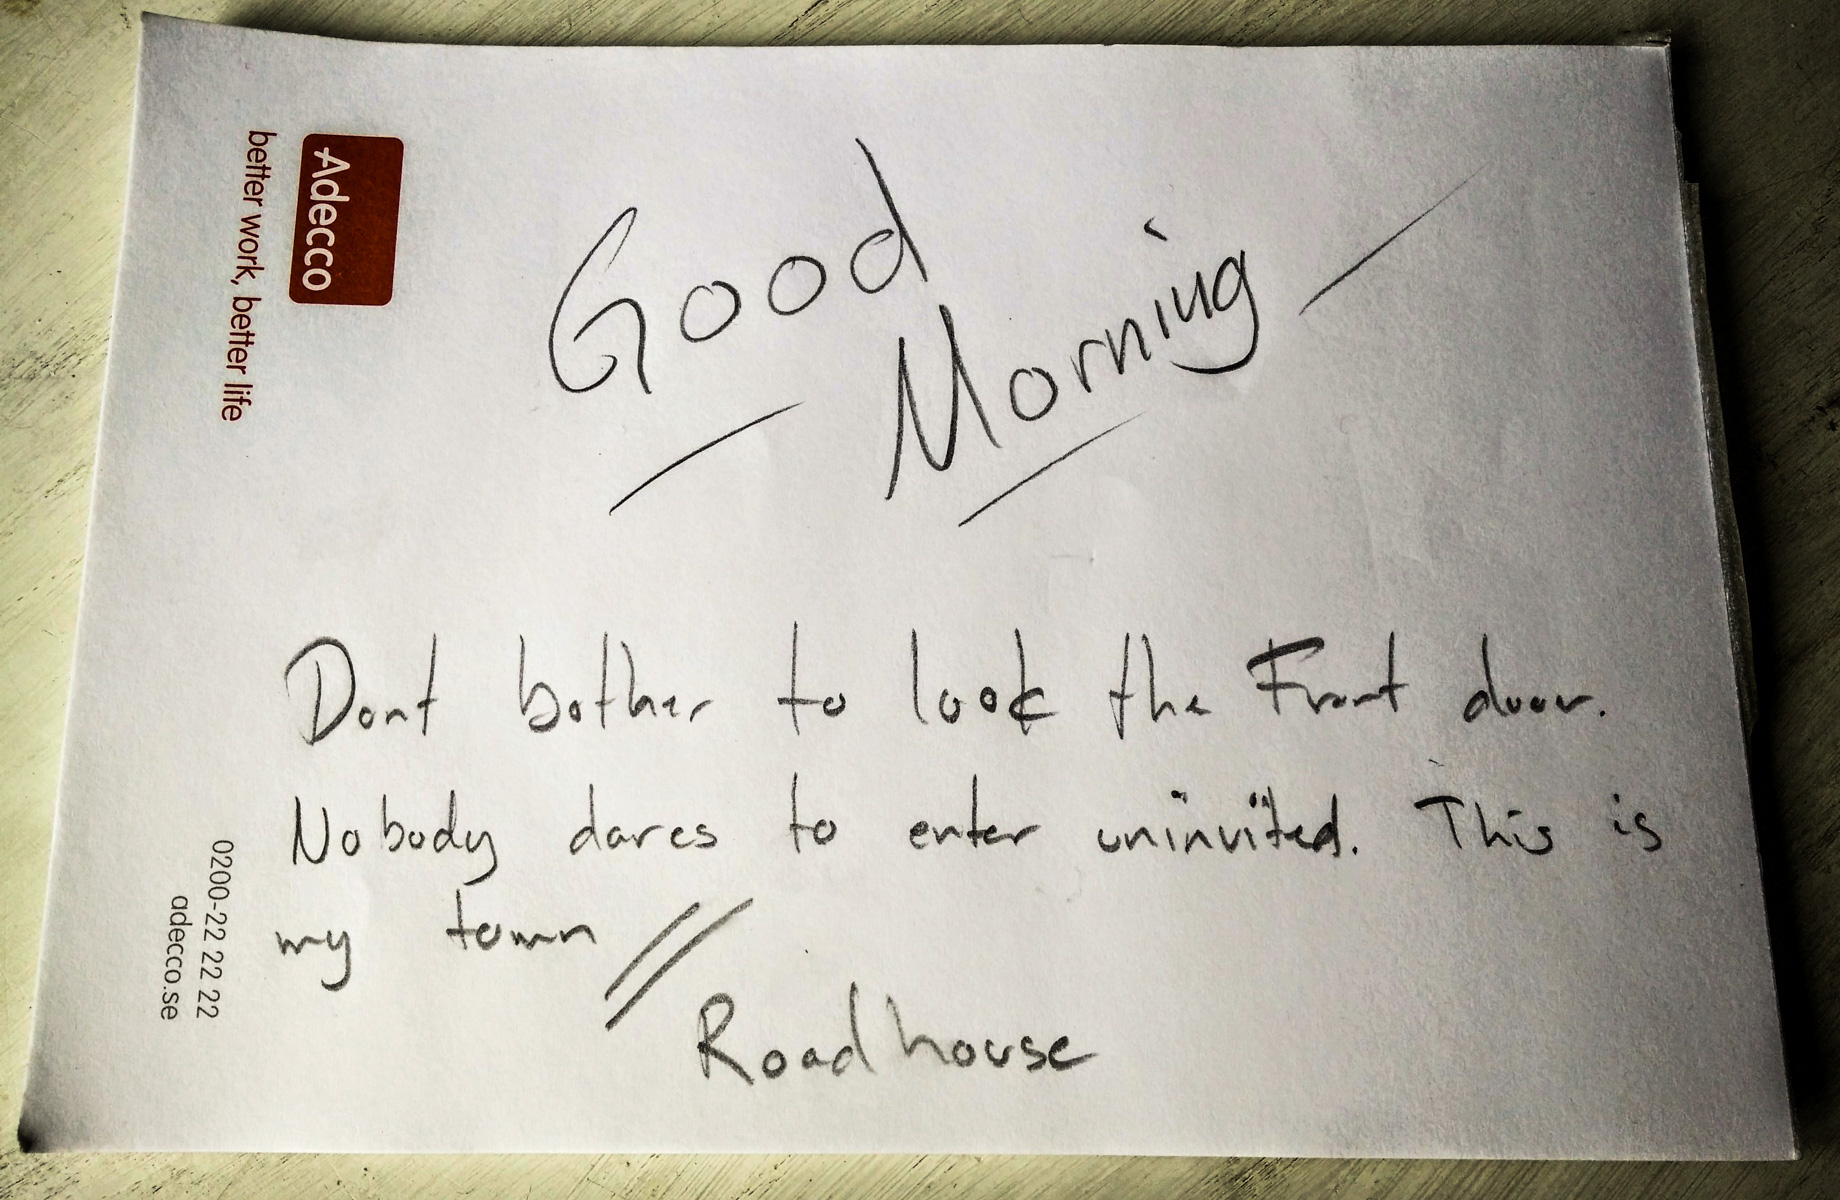 Adecco
better work, better life
Good
Morning
Dont bother to look the Front door.
Nobody dares to enter uninvited. This is
my town //
Roadhouse
0200-22 22 22
adecco.se